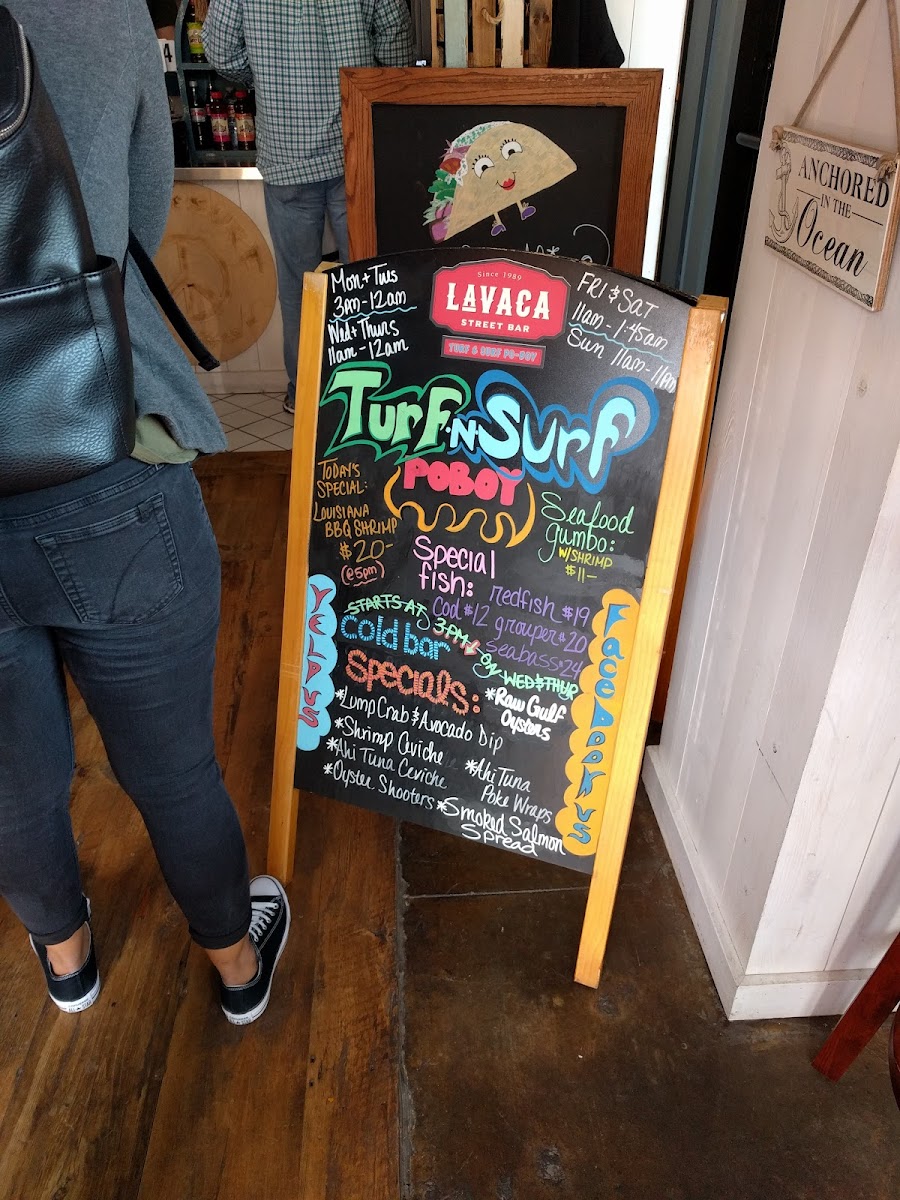 Mon + Tues
3pm-12am
Wed + Thurs
11am-12am
Since 1989
LAVACA
STREET BAR
TURF & SURF PO-BOY
FRI & SAT
11am-1:45am
Sun 11am-11pm
TURF·N·SURF
POBOY
TODAY'S
SPECIAL:
LOUISIANA
BBQ SHRIMP
$20-
(@5pm)
Seafood
gumbo:
W/SHRIMP
$11-
Special
fish:
redfish $19
Cod $12 grouper $20
seabass $24
STARTS AT
3PM
ON WED & THUR
Cold bar
Specials:
*Lump Crab & Avocado Dip
*Shrimp Ceviche
*Ahi Tuna Ceviche
*Oyster Shooters
*Raw Gulf
Oysters
*Ahi Tuna
Poke Wraps
*Smoked Salmon
Spread
YELP US
Facebook us
ANCHORED
IN THE
Ocean
4